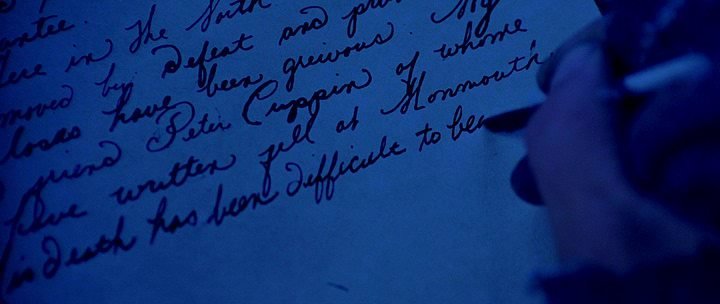 antee.
here in the North
moved by defeat and
loses have been greivous. My
friend Peter Cuppin of whome
have written fell at Monmouth.
is death has been difficult to bea